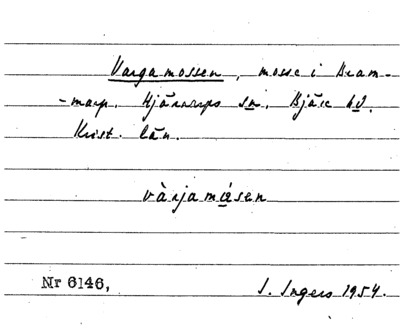 Vargamossen, mosse i Bram-
-marp. Hjärnarps sn. Bjäre hd.
Krist. län.
vàrjamɷ́sen
Nr 6146,
I. Ingers 1954.